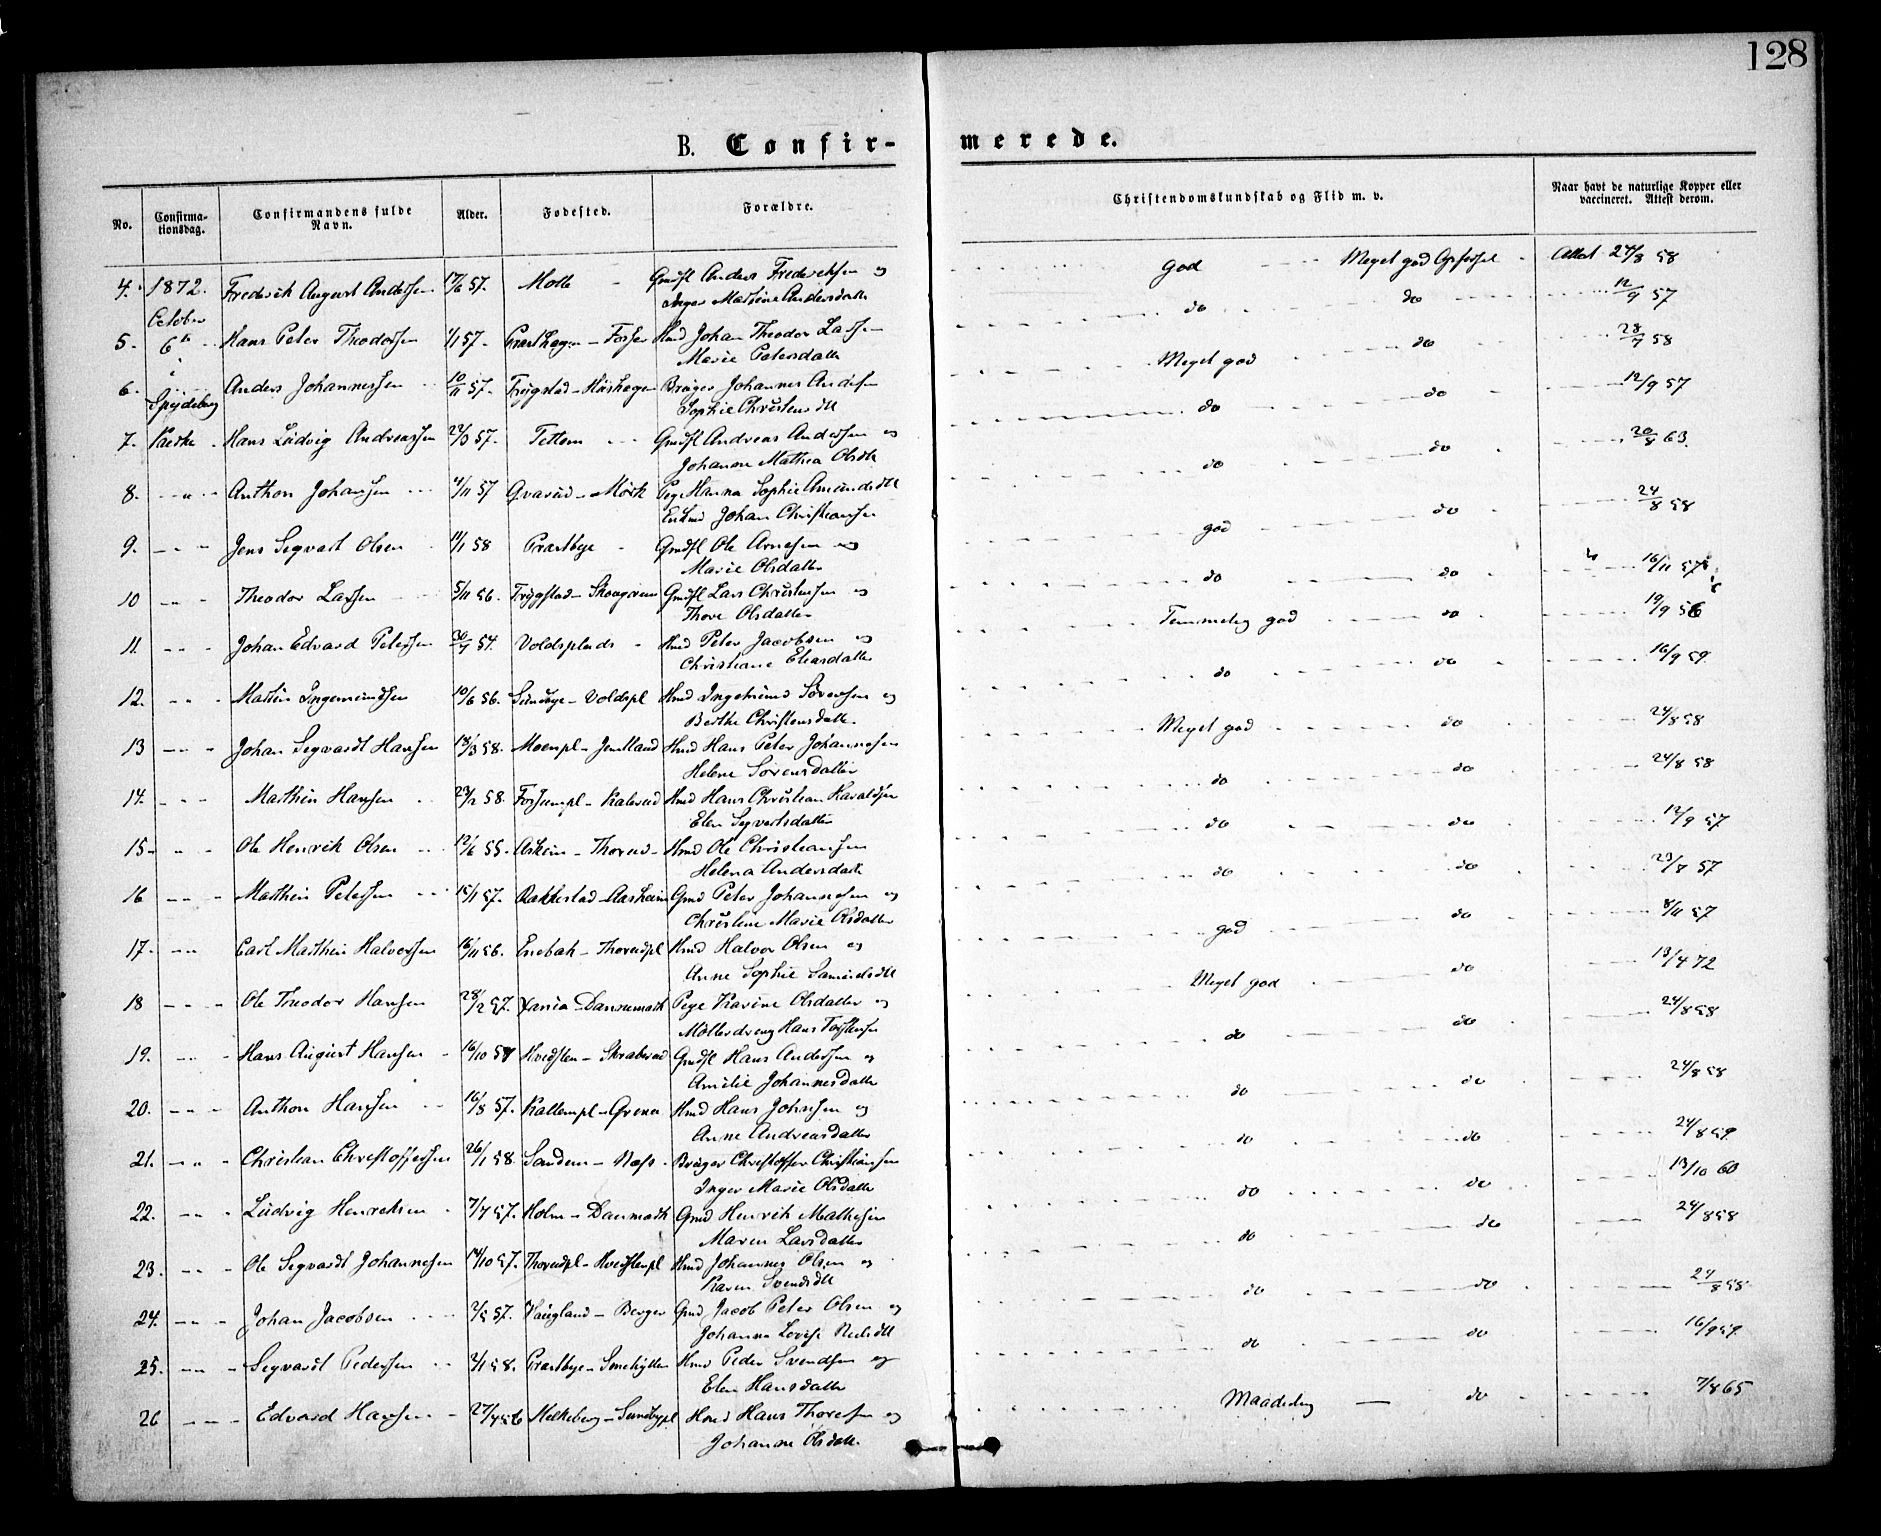 128
B. Confir-
merede.
No.
Confirma-
tionsdag.
Confirmandens fulde
Navn.
Alder.
Fødested.
Forældre.
Christendomskundskab og Flid m. v.
Naar havt de naturlige Kopper eller
vaccineret. Attest derom.
4. 1872. Frederik August Andersen 17/6 57. Gmdfl Anders Frederiksen og god Meget god Opførsel Attest 24/8 58
October Inger Andersdatter
5. 6te Hans Peter Theodorsen 1/1 57. Hmd Johan Theodor Larsen do do 12/9 57
Marie Petersdatter
6. Anders Johannessen 10/11 57. Frÿgstad - Bruger Johannes Andersen Meget god do 28/7 58
Spydeberg Sophie Christensdtt
7. Kirke Hans Lüdvig Andreassen 22/3 57. Tettem Gmdfl Andreas Andersen og do do 12/9 57
Johanne Mathea Olsdtr
8. Anthon Johansen 4/11 57 - Mørk Pige Hanna Sophie Amundsdtt do do 20/8 63.
Johan Christiansen
9. Jens Segvart Olsen 11/1 58 Præstbye Gmdfl Ole Arnesen og god do 24/8 58
Marie Olsdatter
10 Theodor Larsen 5/11 56. Frÿgstad - Gmdfl Lars Christensen og do do 16/11 57
Thore Olsdatter
11. Johan Edvard Petersen 30/7 57. Voldsplads Hmd Peter Jacobsen og Temmelig god do 19/9 56
Christiane Eliasdatter
12. Martin Ingemundsen 10/6 56. Sundbye - Voldspl Hmd Ingemund Sørensen og do do 16/9 59
Berthe Christensdatter
13 Johan Segvardt Hansen 18/3 58. Moenpl - Hmd Hans Peter Johannesen Meget god do 24/8 58
Helene Sørensdatter
14. Mathin Hansen 23/2 58. Hmd Hans Christian Haraldsen do do 24/8 58
Elen Segvartsdatter
15. Ole Henrik Olsen 12/6 55. Askim - Thorud Hmd Ole Christiansen do do 12/9 57
Helena Andersdatt
16 Mathin Petersen 15/11 57. Rakkestad - Aasheim Gmd Peter Johannesen og do do 23/8 57
Christine Marie Olsdatter
17. Carl Marthin Halvorsen 16/11 56. Enebak - Thorudpl Hmd Halvor Olsen og god do 8/11 57
Anne Sophie Samuelsdtt
18 Ole Theodor Hansen 28/2 57. Pige Karine Olsdatter og Meget god do 13/4 72
Møllerdreng Hans Torstensen
19. Hans August Hansen 16/10 57 Hvidsten - Skraberud Gmdfl Hans Andersen og do do 24/8 58
Amilie Johannesdatter
20. Anthon Hansen 16/8 57. Hmd Hans Johnsen og do do 24/8 58
Anne Andreasdatter
21. Christian Christoffersen 26/1 58. Sandem - Næss Bruger Christoffer Christiansen do do 24/8 59
Inger Marie Olsdatter
22. Lüdvig Henriksen 7/4 57. Holm - Danmark Gmd Henrik Mathesen do do 13/10 60
Maren Larsdatter
23. Ole Segvardt Johannesen 14/10 57. Thorudpl - Hvidstenpl Hmd Johannes Olsen og do do 24/8 58
Karen Svendsdtt
24. Johan Jacobsen 2/5 57. Haugland - Berger Gmd Jacob Peter Olsen og do do 24/8 58
Johanne Lovise Nielsdtt
25. Segvardt Pedersen 2/1 58. Præstbye - Hmd Peder Svendsen og do do 16/9 59
Elen Hansdatter
26 Edvard Hansen 27/4 56 - Sundbypl Hmd Hans Thoresen og Maadelig do 7/8 65
Johanne Olsdatt.